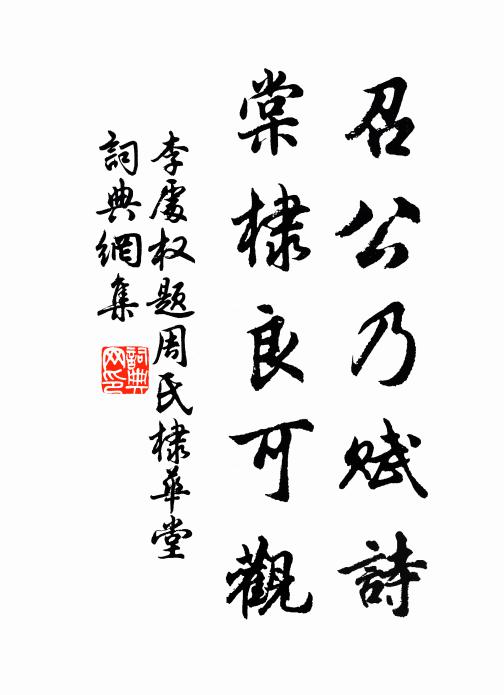 召公乃赋詩
棠棣良可觀
李處权题周氏棣華堂
詞典網集
詞典網印